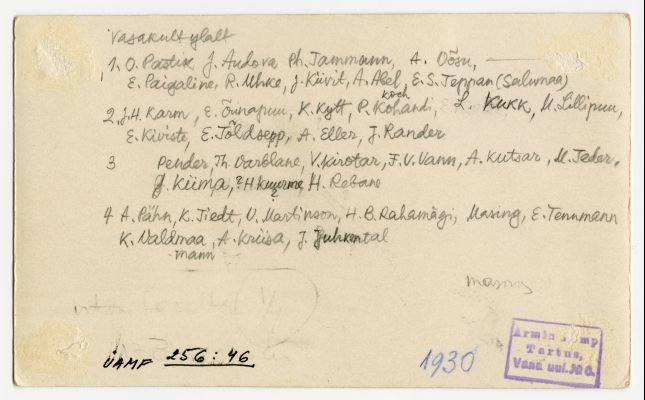 Vasakult ülalt
1. O. Pastik J. Audova Ph. Tammann, A. Võsu, ———
E. Paigaline, R. Uhke, J. Kiivit, A. Abel, E. S. Teppan (Salumaa)
2. J. H. Karm, E. Õunapuu, K. Kytt, P. Kohandi, L. Kukk, M. Lillipuu,
koch
E. Kiviste, E. Tõldsepp, A. Eller, J. Rander
3 Pender, Th. Varblane, V. Kirotar, F. V. Vann, A. Kutsar, M. Teder,
J. Kiima, ? H. Kuurme, H. Rebane
?
4 A. Pähn, K. Tiedt, V. Martinson, H. B. Rahamägi, Masing, E. Tennmann
K. Valdmaa, A. Kriisa, J. Juhkental
mann
ÜAMF 256:46
1930
Tartus,
Vana uul. №